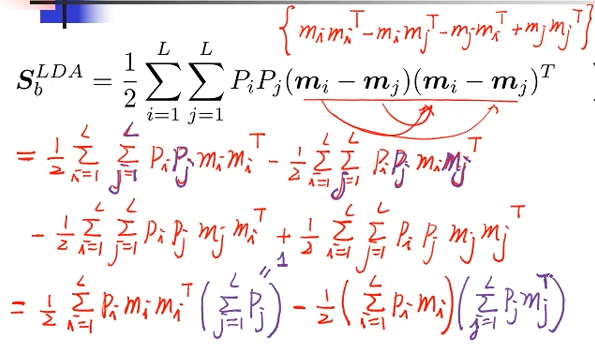 {m_i m_i^T - m_i m_j^T - m_j m_i^T + m_j m_j^T}
S_b^{LDA} = \frac{1}{2} \sum_{i=1}^{L} \sum_{j=1}^{L} P_i P_j (m_i - m_j)(m_i - m_j)^T
= \frac{1}{2} \sum_{i=1}^{L} \sum_{j=1}^{L} P_i P_j m_i m_i^T - \frac{1}{2} \sum_{i=1}^{L} \sum_{j=1}^{L} P_i P_j m_i m_j^T
- \frac{1}{2} \sum_{i=1}^{L} \sum_{j=1}^{L} P_i P_j m_j m_i^T + \frac{1}{2} \sum_{i=1}^{L} \sum_{j=1}^{L} P_i P_j m_j m_j^T
" 1
= \frac{1}{2} \sum_{i=1}^{L} P_i m_i m_i^T (\sum_{j=1}^{L} P_j) - \frac{1}{2} (\sum_{i=1}^{L} P_i m_i)(\sum_{j=1}^{L} P_j m_j^T)